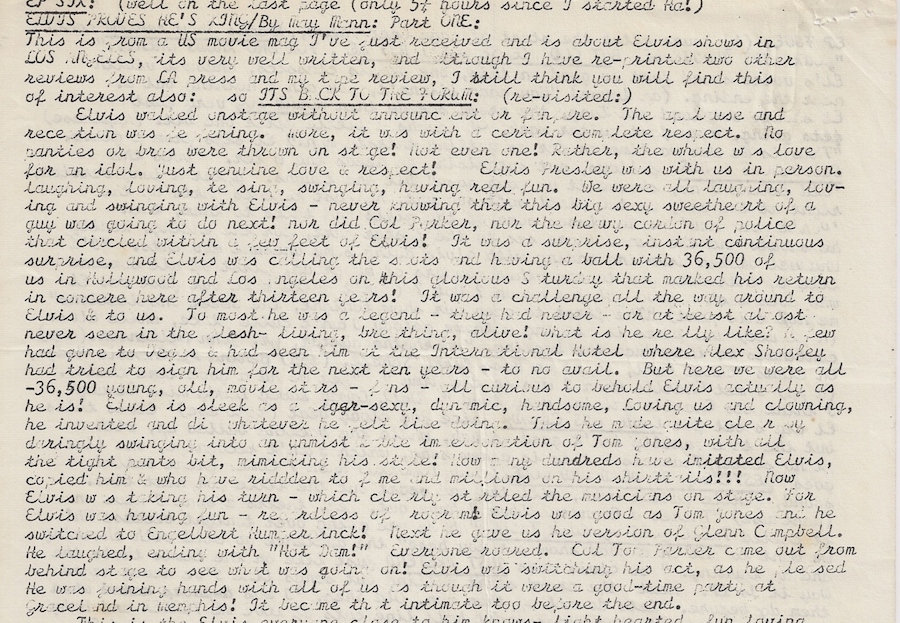 EP SIX: (well on the last page (only 5¼ hours since I started Ha!)
ELVIS PROVES HE'S KING/By May Mann: Part ONE:
This is from a US movie mag I've just received and is about Elvis shows in
LOS ANGELES, its very well written, and although I have re-printed two other
reviews from LA press and my tape review, I still think you will find this
of interest also: so ITS BACK TO THE FORUM: (re-visited:)
Elvis walked onstage without announcement or fanfare. The applause and
reception was deafening. More, it was with a certain complete respect. No
panties or bras were thrown on stage! Not even one! Rather, the whole was love
for an idol. Just genuine love & respect! Elvis Presley was with us in person.
laughing, loving, teasing, swinging, having real fun. We were all laughing, lov-
ing and swinging with Elvis - never knowing that this big sexy sweetheart of a
guy was going to do next! nor did Col Parker, nor the heavy cordon of police
that circled within a few feet of Elvis! It was a surprise, instant continuous
surprise, and Elvis was calling the shots and having a ball with 36,500 of
us in Hollywood and Los Angeles on this glorious Saturday that marked his return
in concere here after thirteen years! It was a challenge all the way around to
Elvis & to us. To most he was a legend - they had never - or at least almost
never seen in the flesh- living, breathing, alive! What is he really like? A few
had gone to Vegas & had seen him at the International Hotel where Alex Shoofey
had tried to sign him for the next ten years - to no avail. But here we were all
-36,500 young, old, movie stars - fans - all curious to behold Elvis actually as
he is! Elvis is sleek as a tiger-sexy, dynamic, handsome, Loving us and clowning,
he invented and did whatever he felt like doing. This he made quite clear by
daringly swinging into an unmistakable impersonation of Tom Jones, with all
the tight pants bit, mimicking his style! How many dundreds have imitated Elvis,
copied him & who have riddden to fame and millions on his shirttails!!! Now
Elvis was taking his turn - which clearly startled the musicians on stage. For
Elvis was having fun - regardless of program! Elvis was good as Tom Jones and he
switched to Engelbert Humperdinck! Next he gave us he version of Glenn Campbell.
He laughed, ending with "Hot Dam!" Everyone roared. Col Tom Parker came out from
behind stage to see what was going on! Elvis was switching his act, as he pleased
He was joining hands with all of us as though it were a good-time party at
Graceland in Memphis! It became that intimate too before the end.
This is the Elvis everyone close to him knows- light hearted, fun loving